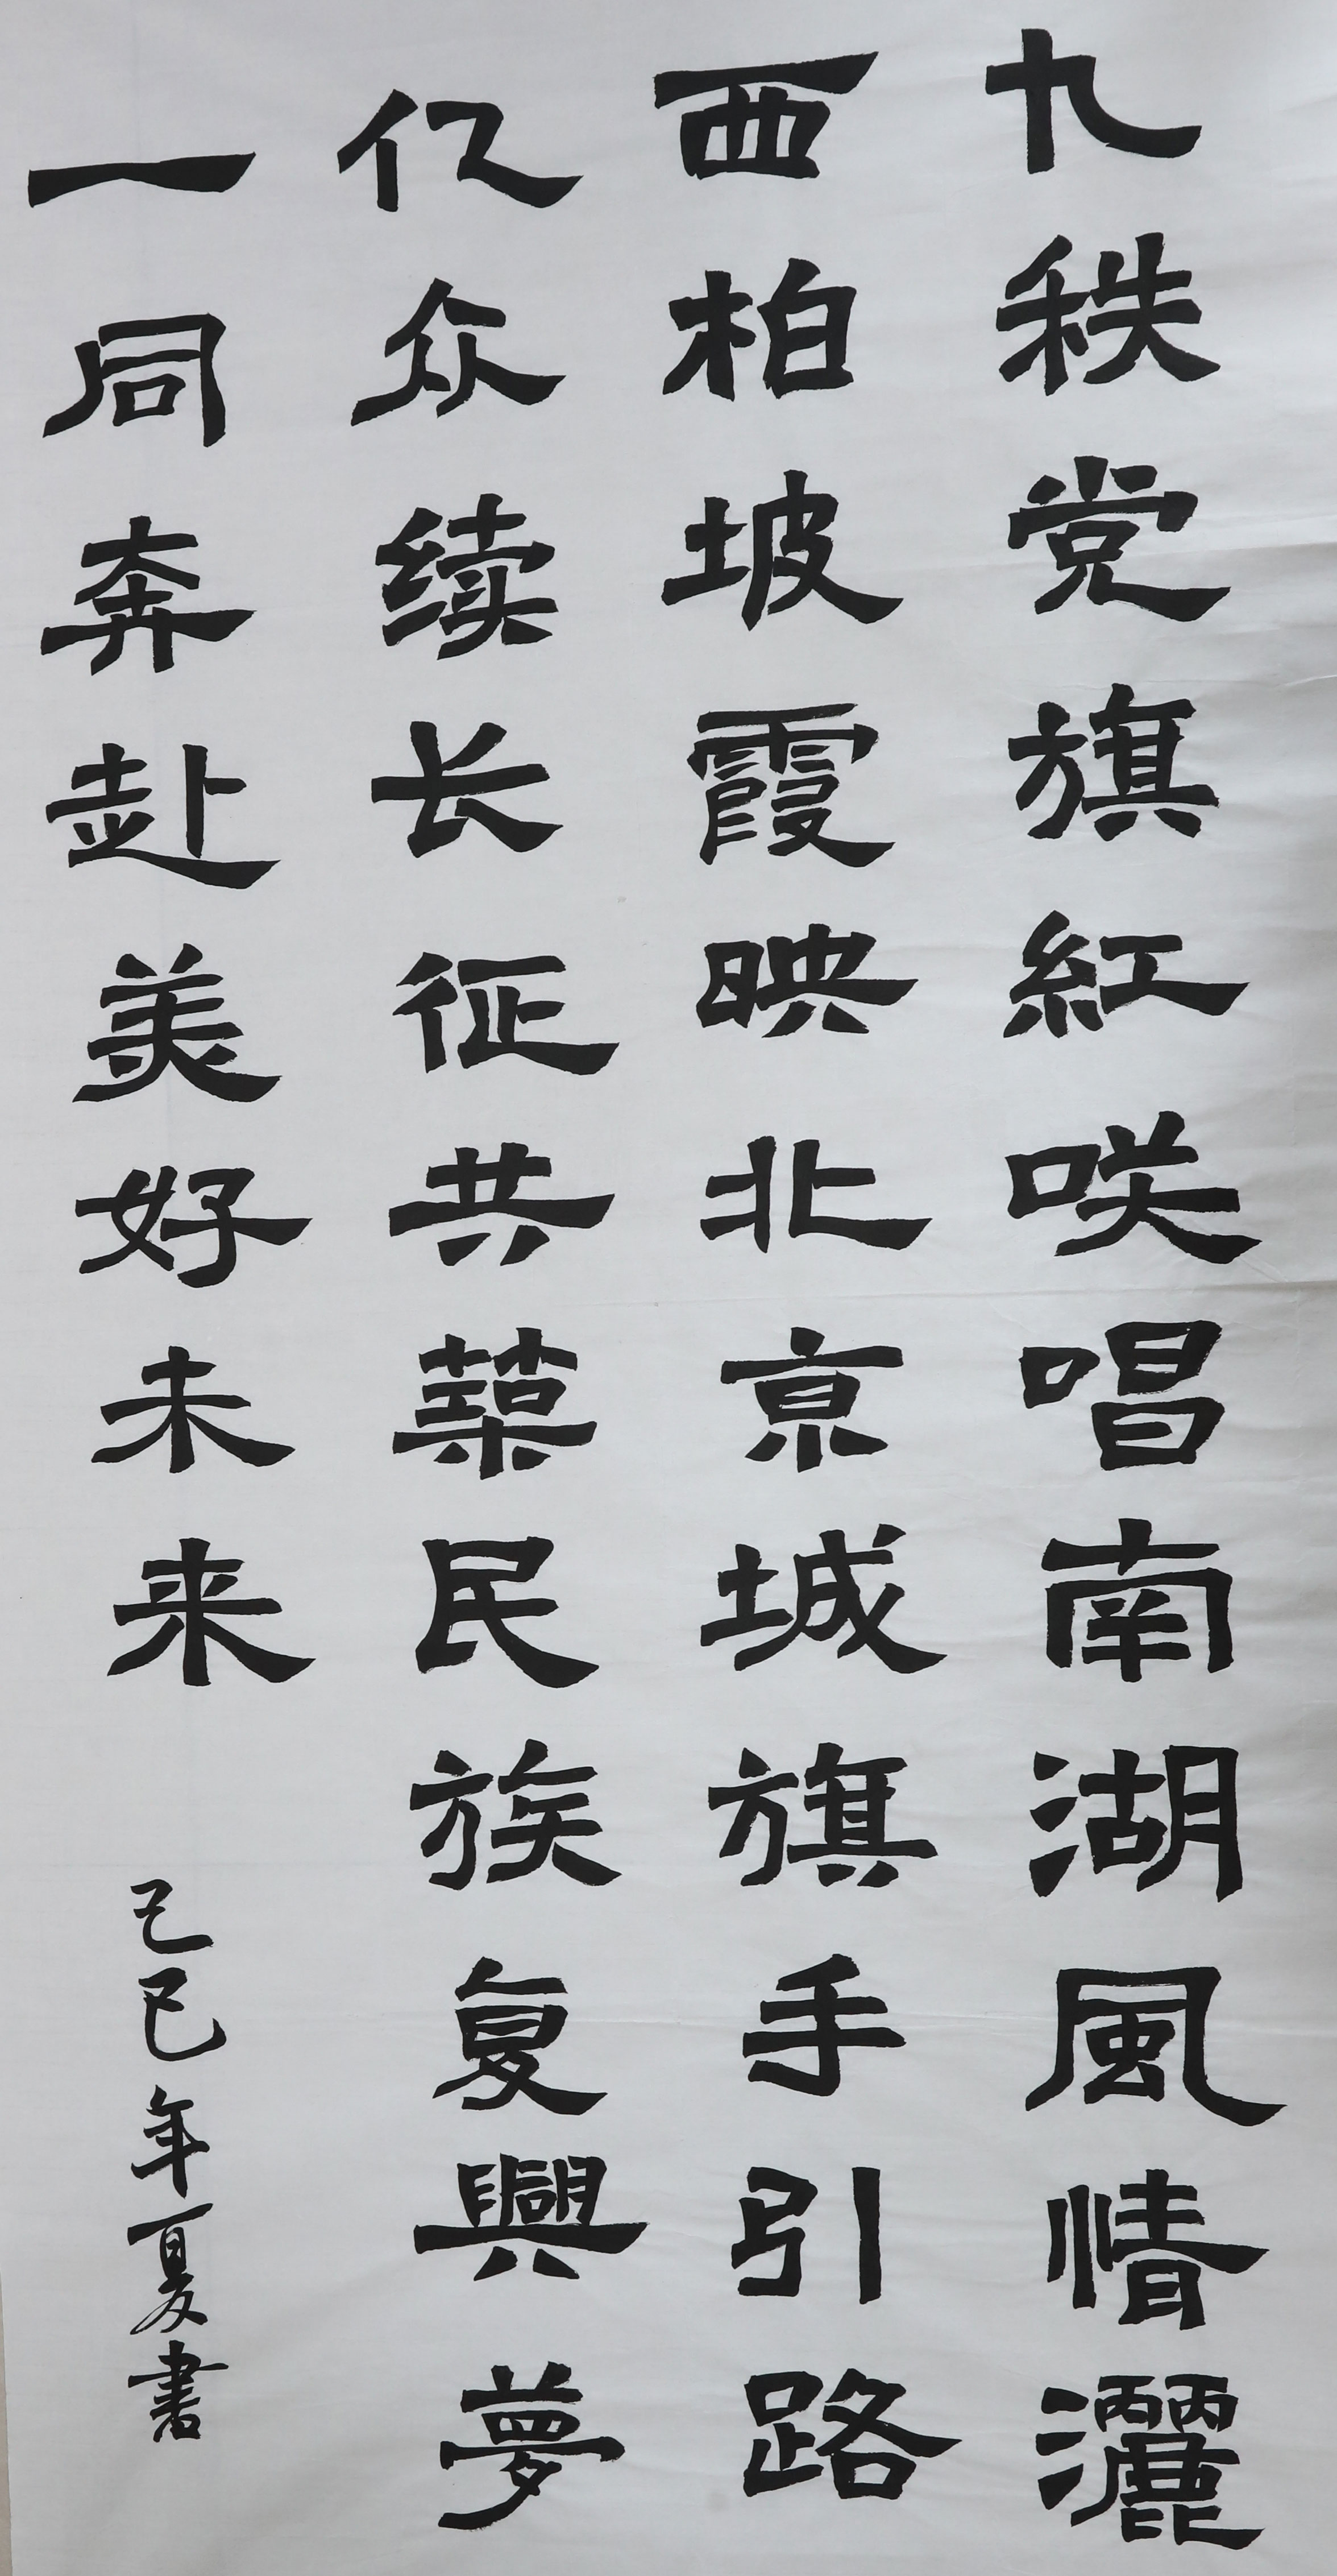 九秩党旗紅咲唱南湖風情灑
西柏坡霞映北京城旗手引路
亿众续长征共築民族复興夢
一同奔赴美好未来
己巳年夏書